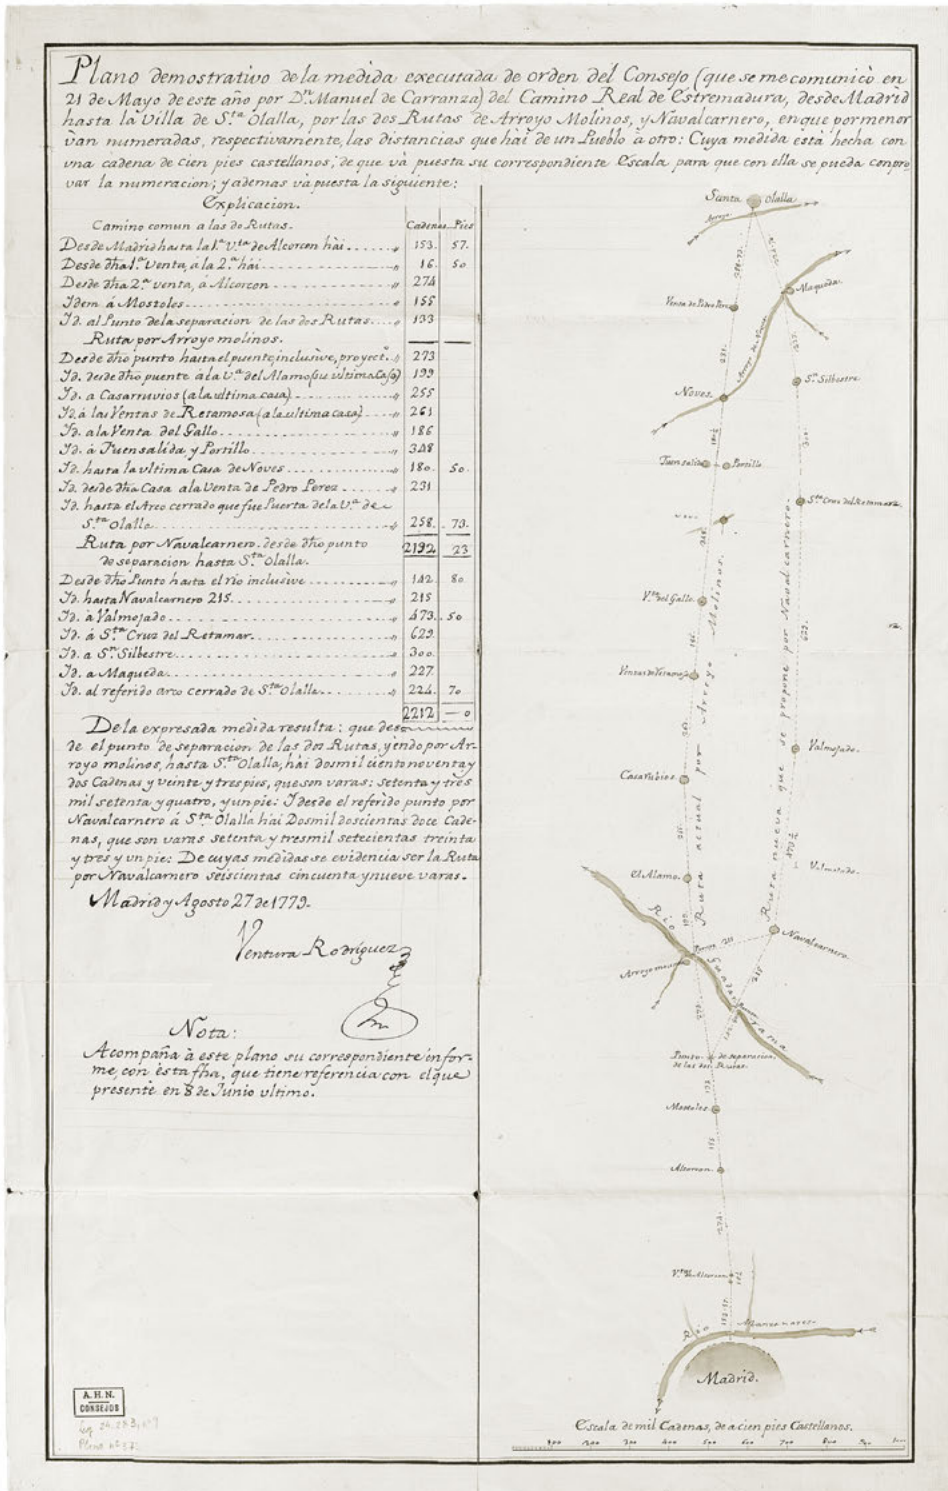 Plano demostrativo de la medida executada de orden del Consejo (que se me comunicò en
21 de Mayo de este año por D.ⁿ Manuel de Carranza) del Camino Real de Estremadura, desde Madrid
hasta la Villa de S.ᵗᵃ Olalla, por las dos Rutas de Arroyo Molinos, y Navalcarnero, en que por menor
vàn numeradas, respectivamente, las distancias que hài de un Pueblo à otro: Cuya medida està hecha con
vna cadena de cien pies castellanos, de que và puesta su correspondiente Escala para que con ella se pueda conpro
var la numeracion; y ademas và puesta la siguiente:
Explicacion.
Camino comun a las do Rutas. Cadenas Pies
Desde Madrid hasta la 1.ª V.ᵗᵃ de Alcorcon hài 153. 57.
Desde dha 1.ª Venta, à la 2.ª hài 16. 50
Desde dha 2.ª venta, à Alcorcon 274
Idem à Mostoles 155
Id. al Punto de la separacion de las dos Rutas 133
Ruta por Arroyo molinos.
Desde dho punto hasta el puente, inclusive, proyect.º 273
Id. desde dho puente à la V.ª del Alamo (su ultima Casa) 199
Id. a Casarruvios (a la ultima casa) 255
Id. à las Ventas de Retamosa (a la ultima casa) 261
Id. a la Venta del Gallo 186
Id. à Fuensalida, y Portillo 348
Id. hasta la vltima Casa de Noves 180. 50
Id. desde dha Casa a la Venta de Pedro Perez 231
Id. hasta el Arco cerrado que fue Puerta de la V.ª de
S.ᵗᵃ Olalla 258. 73.
2192 23
Ruta por Navalcarnero. desde dho punto
de separacion hasta S.ᵗᵃ Olalla.
Desde dho Punto hasta el rio inclusive 142 80
Id. hasta Navalcarnero 215. 215
Id. à Valmojado 473. 50
Id. à S.ᵗᵃ Cruz del Retamar 629
Id. a S.ⁿ Silbestre 300
Id. a Maqueda 227
Id. al referido arco cerrado de S.ᵗᵃ Olalla 224. 70
2212 — 0
De la expresada medida resulta: que des
de el punto de separacion de las dos Rutas, yendo por Ar
royo molinos, hasta S.ᵗᵃ Olalla, hài dos mil ciento noventa y
dos Cadenas y veinte y tres pies, que son varas: setenta y tres
mil setenta y quatro, y un pie: I desde el referido punto por
Navalcarnero à S.ᵗᵃ Olalla hài Dos mil doscientas doce Cade-
nas, que son varas setenta y tres mil setecientas treinta
y tres y vn pie: De cuyas medidas se evidencia ser la Ruta
por Navalcarnero seiscientas cincuenta y nueve varas.
Madrid y Agosto 27 de 1779.
Ventura Rodríguez
Nota:
Acompaña à este plano su correspondiente infor-
me, con esta fha, que tiene referencia con el que
presente en 8 de Junio vltimo.
A.H.N.
CONSEJOS
Santa Olalla
Arroyo
Maqueda
Venta de Pedro Perez
S.ⁿ Silbestre
Arroyo de Noves
Noves
Fuensalida
Portillo
S.ᵗᵃ Cruz del Retamar
V.ᵗᵃ del Gallo
Ventas de Retamosa
Valmojado
Casarubios
Ruta actual por Arroyo Molinos.
Ruta nueva que se propone por Navalcarnero.
El Alamo
Valmojado
Navalcarnero
Rio Guadarrama
Arroyomolinos
Punto de separacion
de las dos Rutas.
Mostoles
Alcorcon
V.ᵗᵃ de Alcorcon
Rio Manzanares
Madrid.
Escala de mil Cadenas, de a cien pies Castellanos.
100 200 300 400 500 600 700 800 900 1000